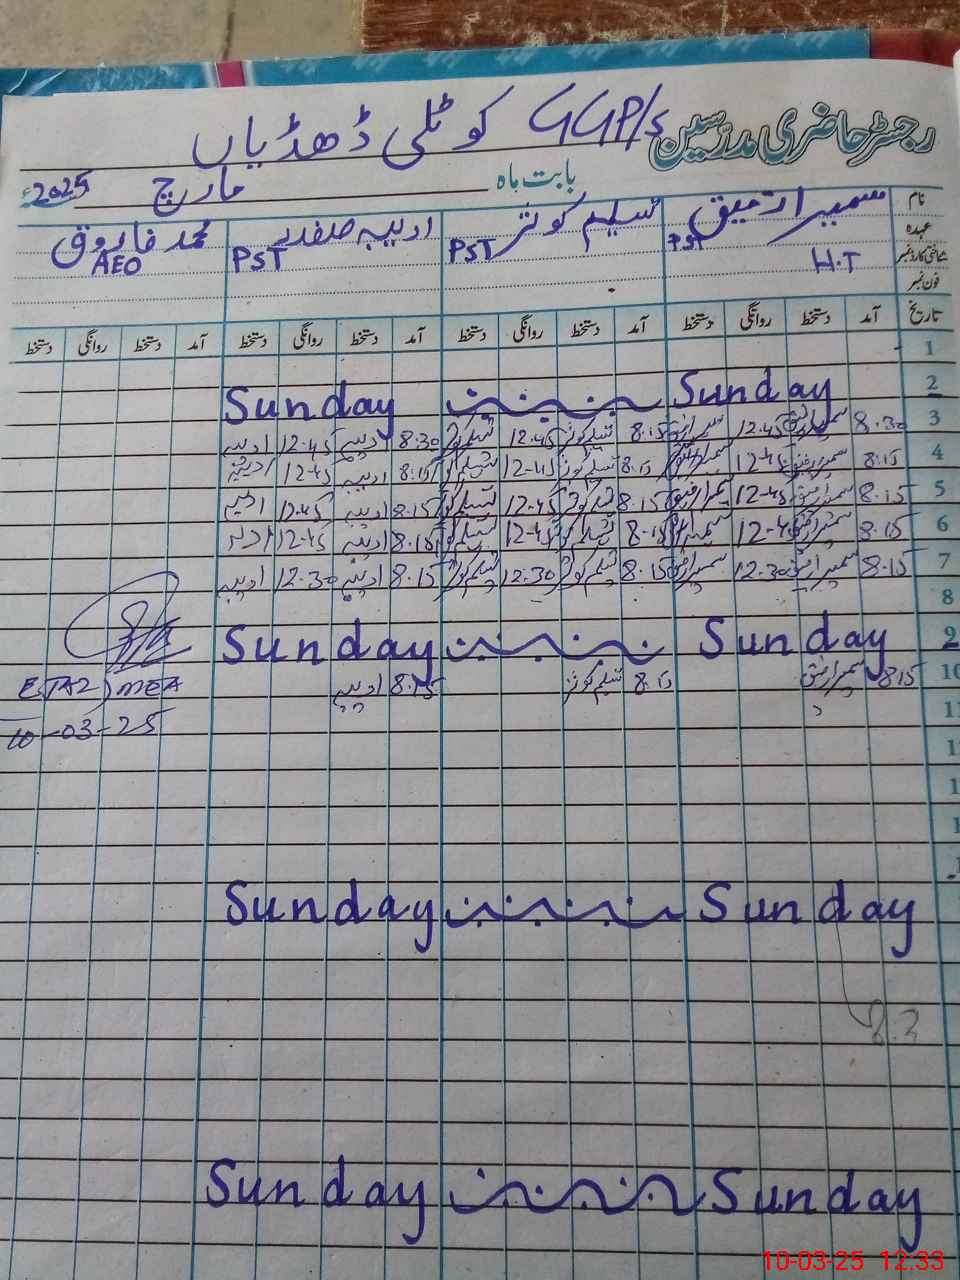 رجسٹر حاضری مدرسین GGP/s کوٹلی ڈھڈیاں
بابت ماہ مارچ 2025ء
نام سمیرا رفیق تسلیم کوثر ادیبہ صفدر محمد فاروق
عہدہ PST H.T PST PST AEO
شناختی کارڈ نمبر
فون نمبر
تاریخ آمد دستخط روانگی دستخط آمد دستخط روانگی دستخط آمد دستخط روانگی دستخط آمد دستخط روانگی دستخط
1
2 Sunday Sunday
3 8.30 سمیرا رفیق 12.45 سمیرا رفیق 8.15 تسلیم کوثر 12.45 تسلیم کوثر 8.30 ادیبہ 12.45 ادیبہ
4 8.15 سمیرا رفیق 12-45 سمیرا رفیق 8.15 تسلیم کوثر 12-45 تسلیم کوثر 8.15 ادیبہ 12-45 ادیبہ
5 8.15 سمیرا رفیق 12-45 سمیرا رفیق 8.15 تسلیم کوثر 12-45 تسلیم کوثر 8.15 ادیبہ 12.45 ادیبہ
6 8.15 سمیرا رفیق 12-45 سمیرا رفیق 8.15 تسلیم کوثر 12-45 تسلیم کوثر 8.15 ادیبہ 12-45 ادیبہ
7 8.15 سمیرا رفیق 12.30 سمیرا رفیق 8.15 تسلیم کوثر 12.30 تسلیم کوثر 8.15 ادیبہ 12.30 ادیبہ
8
9 Sunday Sunday
10 8.15 سمیرا رفیق 8.15 تسلیم کوثر 8.15 ادیبہ
MEA
10-03-25
11
Sunday Sunday
8.3
Sunday Sunday
10-03-25 12:33